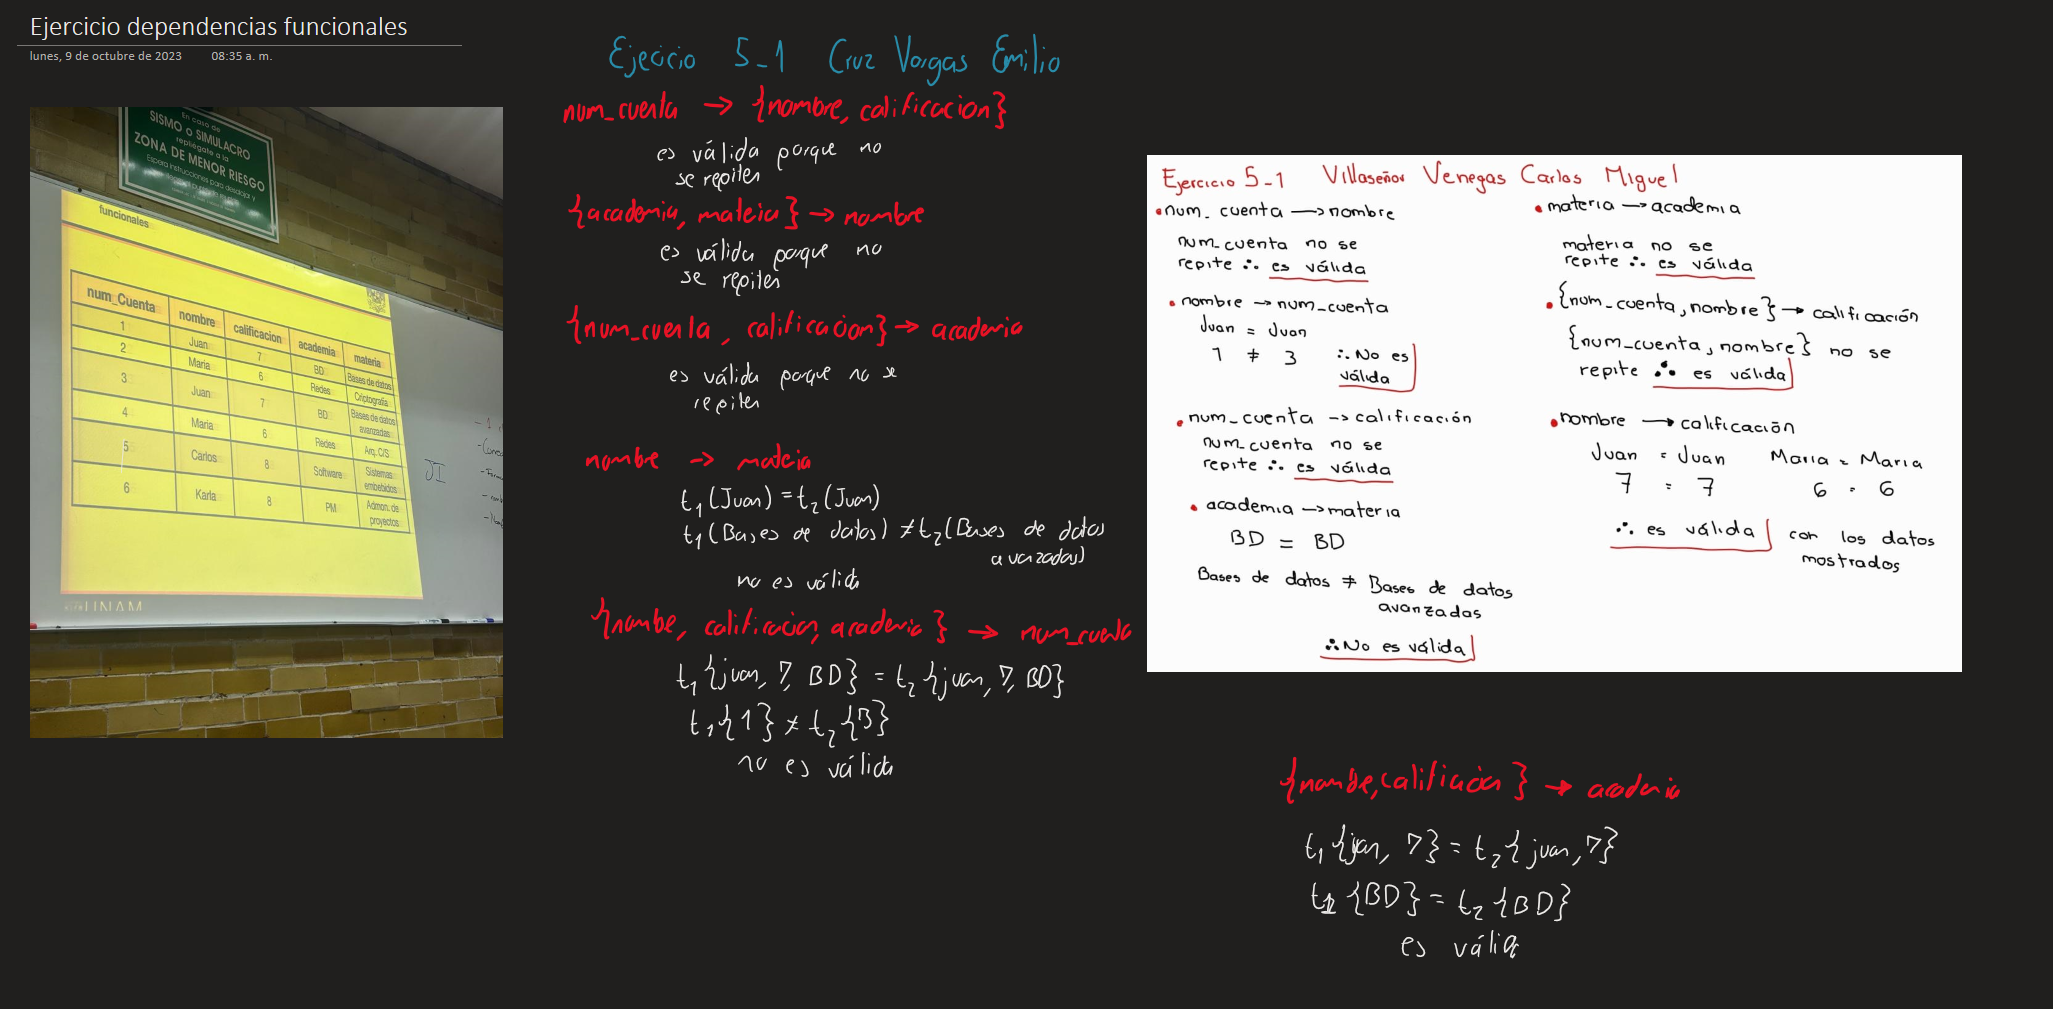 Ejercicio dependencias funcionales
lunes, 9 de octubre de 2023 08:35 a. m.
En caso de
SISMO o SIMULACRO
repliégate a la
ZONA DE MENOR RIESGO
funcionales
num_Cuenta nombre calificacion academia materia
1 Juan 7 BD Bases de datos
2 Maria 6 Redes Criptografía
3 Juan 7 BD Bases de datos avanzadas
4 Maria 6 Redes Arq. C/S
5 Carlos 8 Software Sistemas embebidos
6 Karla 8 PM Admon. de proyectos
UNAM
Ejecicio 5-1 Cruz Vargas Emilio
num_cuenta → {nombre, calificacion}
es válida porque no
se repiten
{academia, mateia} → nombre
es válida porque no
se repiten
{num_cuenta, calificacion} → academia
es válida porque no se
repiten
nombre → mateia
t1(Juan) = t2(Juan)
t1(Bases de datos) ≠ t2(Bases de datos
avanzadas)
no es válida
{nombe, calificacion, academia} → num_cuenta
t1{juan, 7, BD} = t2{juan, 7, BD}
t1{1} ≠ t2{3}
no es válida
Ejercicio 5-1 Villaseñor Venegas Carlos Miguel
•num_cuenta → nombre
num_cuenta no se
repite ∴ es válida
•nombre → num_cuenta
Juan = Juan
1 ≠ 3 ∴ No es
válida
•num_cuenta → calificación
num_cuenta no se
repite ∴ es válida
•academia → materia
BD = BD
Bases de datos ≠ Bases de datos
avanzados
∴ No es válida
•materia → academia
materia no se
repite ∴ es válida
•{num_cuenta, nombre} → calificación
{num_cuenta, nombre} no se
repite ∴ es válida
•nombre → calificación
Juan = Juan María = María
7 = 7 6 = 6
∴ es válida con los datos
mostrados
{nombe, calificación} → academia
t1{jan, 7} = t2{juan, 7}
t1{BD} = t2{BD}
es válida